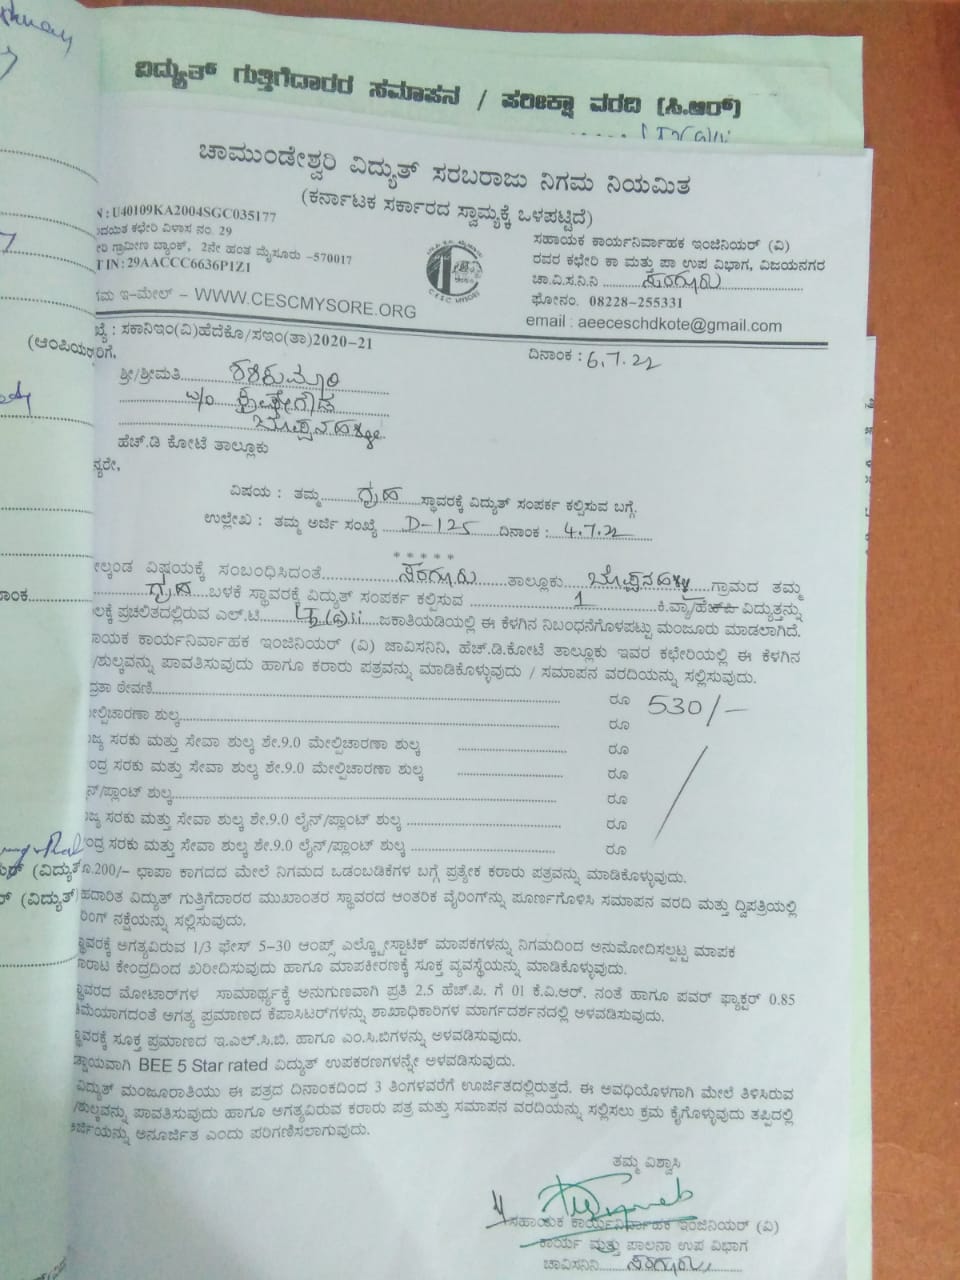 ವಿದ್ಯುತ್ ಗುತ್ತಿಗೆದಾರರ ಸಮಾಪನ / ಪರೀಕ್ಷಾ ವರದಿ (ಸಿ.ಆರ್)
ಚಾಮುಂಡೇಶ್ವರಿ ವಿದ್ಯುತ್ ಸರಬರಾಜು ನಿಗಮ ನಿಯಮಿತ
(ಕರ್ನಾಟಕ ಸರ್ಕಾರದ ಸ್ವಾಮ್ಯಕ್ಕೆ ಒಳಪಟ್ಟಿದೆ)
N : U40109KA2004SGC035177
ಕಛೇರಿ ವಿಳಾಸ ನಂ. 29
ಗ್ರಾಮೀಣ ಬ್ಯಾಂಕ್, 2ನೇ ಹಂತ ಮೈಸೂರು –570017
TIN : 29AACCC6636P1Z1
ಇ-ಮೇಲ್ – WWW.CESCMYSORE.ORG
ಸಹಾಯಕ ಕಾರ್ಯನಿರ್ವಾಹಕ ಇಂಜಿನಿಯರ್ (ವಿ)
ರವರ ಕಛೇರಿ ಕಾ ಮತ್ತು ಪಾ ಉಪ ವಿಭಾಗ, ವಿಜಯನಗರ
ಚಾ.ವಿ.ಸ.ನಿ.ನಿ ಸರಗೂರು
ಫೋನಂ. 08228-255331
email : aeeceschdkote@gmail.com
C.E.S.C MYSORE
: ಸಕಾನಿಇಂ(ವಿ)ಹೆದೆಕೊ/ಸಇಂ(ತಾ)2020-21
ದಿನಾಂಕ : 6.7.22
ಶ್ರೀ/ಶ್ರೀಮತಿ ಶಶಿಕುಮಾರಿ
ಹೆಚ್.ಡಿ ಕೋಟೆ ತಾಲ್ಲೂಕು
ವಿಷಯ : ತಮ್ಮ ಗೃಹ ಸ್ಥಾವರಕ್ಕೆ ವಿದ್ಯುತ್ ಸಂಪರ್ಕ ಕಲ್ಪಿಸುವ ಬಗ್ಗೆ.
ಉಲ್ಲೇಖ : ತಮ್ಮ ಅರ್ಜಿ ಸಂಖ್ಯೆ D-125 ದಿನಾಂಕ : 4.7.22
*****
ವಿಷಯಕ್ಕೆ ಸಂಬಂಧಿಸಿದಂತೆ ಸರಗೂರು ತಾಲ್ಲೂಕು ಗ್ರಾಮದ ತಮ್ಮ
ಗೃಹ ಬಳಕೆ ಸ್ಥಾವರಕ್ಕೆ ವಿದ್ಯುತ್ ಸಂಪರ್ಕ ಕಲ್ಪಿಸುವ 1 ಕಿ.ವ್ಯಾ/ಹೆಚ್‌ಪಿ ವಿದ್ಯುತ್ತನ್ನು
ಪ್ರಚಲಿತದಲ್ಲಿರುವ ಎಲ್.ಟಿ ಜಕಾತಿಯಡಿಯಲ್ಲಿ ಈ ಕೆಳಗಿನ ನಿಬಂಧನೆಗೊಳಪಟ್ಟು ಮಂಜೂರು ಮಾಡಲಾಗಿದೆ.
ಕಾರ್ಯನಿರ್ವಾಹಕ ಇಂಜಿನಿಯರ್ (ವಿ) ಚಾವಿಸನಿನಿ, ಹೆಚ್.ಡಿ.ಕೋಟೆ ತಾಲ್ಲೂಕು ಇವರ ಕಛೇರಿಯಲ್ಲಿ ಈ ಕೆಳಗಿನ
/ಶುಲ್ಕವನ್ನು ಪಾವತಿಸುವುದು ಹಾಗೂ ಕರಾರು ಪತ್ರವನ್ನು ಮಾಡಿಕೊಳ್ಳುವುದು / ಸಮಾಪನ ವರದಿಯನ್ನು ಸಲ್ಲಿಸುವುದು.
ಠೇವಣಿ ರೂ 530/-
ಶುಲ್ಕ ರೂ
ಸರಕು ಮತ್ತು ಸೇವಾ ಶುಲ್ಕ ಶೇ.9.0 ಮೇಲ್ವಿಚಾರಣಾ ಶುಲ್ಕ ರೂ
ಸರಕು ಮತ್ತು ಸೇವಾ ಶುಲ್ಕ ಶೇ.9.0 ಮೇಲ್ವಿಚಾರಣಾ ಶುಲ್ಕ ರೂ
/ಪ್ಲಾಂಟ್ ಶುಲ್ಕ ರೂ
ಸರಕು ಮತ್ತು ಸೇವಾ ಶುಲ್ಕ ಶೇ.9.0 ಲೈನ್/ಪ್ಲಾಂಟ್ ಶುಲ್ಕ ರೂ
ಸರಕು ಮತ್ತು ಸೇವಾ ಶುಲ್ಕ ಶೇ.9.0 ಲೈನ್/ಪ್ಲಾಂಟ್ ಶುಲ್ಕ ರೂ
200/- ಛಾಪಾ ಕಾಗದದ ಮೇಲೆ ನಿಗಮದ ಒಡಂಬಡಿಕೆಗಳ ಬಗ್ಗೆ ಪ್ರತ್ಯೇಕ ಕರಾರು ಪತ್ರವನ್ನು ಮಾಡಿಕೊಳ್ಳುವುದು.
ವಿದ್ಯುತ್ ಗುತ್ತಿಗೆದಾರರ ಮುಖಾಂತರ ಸ್ಥಾವರದ ಆಂತರಿಕ ವೈರಿಂಗ್‌ನ್ನು ಪೂರ್ಣಗೊಳಿಸಿ ಸಮಾಪನ ವರದಿ ಮತ್ತು ದ್ವಿಪ್ರತಿಯಲ್ಲಿ
ನಕ್ಷೆಯನ್ನು ಸಲ್ಲಿಸುವುದು.
ಅಗತ್ಯವಿರುವ 1/3 ಫೇಸ್ 5-30 ಆಂಪ್ಸ್ ಎಲೆಕ್ಟ್ರೋಸ್ಟಾಟಿಕ್ ಮಾಪಕಗಳನ್ನು ನಿಗಮದಿಂದ ಅನುಮೋದಿಸಲ್ಪಟ್ಟ ಮಾಪಕ
ಕೇಂದ್ರದಿಂದ ಖರೀದಿಸುವುದು ಹಾಗೂ ಮಾಪಕೀರಣಕ್ಕೆ ಸೂಕ್ತ ವ್ಯವಸ್ಥೆಯನ್ನು ಮಾಡಿಕೊಳ್ಳುವುದು.
ಮೋಟಾರ್‌ಗಳ ಸಾಮಾರ್ಥ್ಯಕ್ಕೆ ಅನುಗುಣವಾಗಿ ಪ್ರತಿ 2.5 ಹೆಚ್.ಪಿ. ಗೆ 01 ಕೆ.ವಿ.ಆರ್. ನಂತೆ ಹಾಗೂ ಪವರ್ ಫ್ಯಾಕ್ಟರ್ 0.85
ಅಗತ್ಯ ಪ್ರಮಾಣದ ಕೆಪಾಸಿಟರ್‌ಗಳನ್ನು ಶಾಖಾಧಿಕಾರಿಗಳ ಮಾರ್ಗದರ್ಶನದಲ್ಲಿ ಅಳವಡಿಸುವುದು.
ಸೂಕ್ತ ಪ್ರಮಾಣದ ಇ.ಎಲ್.ಸಿ.ಬಿ. ಹಾಗೂ ಎಂ.ಸಿ.ಬಿಗಳನ್ನು ಅಳವಡಿಸುವುದು.
BEE 5 Star rated ವಿದ್ಯುತ್ ಉಪಕರಣಗಳನ್ನೇ ಅಳವಡಿಸುವುದು.
ವಿದ್ಯುತ್ ಮಂಜೂರಾತಿಯು ಈ ಪತ್ರದ ದಿನಾಂಕದಿಂದ 3 ತಿಂಗಳವರೆಗೆ ಊರ್ಜಿತದಲ್ಲಿರುತ್ತದೆ. ಈ ಅವಧಿಯೊಳಗಾಗಿ ಮೇಲೆ ತಿಳಿಸಿರುವ
/ಶುಲ್ಕವನ್ನು ಪಾವತಿಸುವುದು ಹಾಗೂ ಅಗತ್ಯವಿರುವ ಕರಾರು ಪತ್ರ ಮತ್ತು ಸಮಾಪನ ವರದಿಯನ್ನು ಸಲ್ಲಿಸಲು ಕ್ರಮ ಕೈಗೊಳ್ಳುವುದು ತಪ್ಪಿದಲ್ಲಿ
ಅರ್ಜಿಯನ್ನು ಅನೂರ್ಜಿತ ಎಂದು ಪರಿಗಣಿಸಲಾಗುವುದು.
ತಮ್ಮ ವಿಶ್ವಾಸಿ
ಸಹಾಯಕ ಕಾರ್ಯನಿರ್ವಾಹಕ ಇಂಜಿನಿಯರ್ (ವಿ)
ಕಾರ್ಯ ಮತ್ತು ಪಾಲನಾ ಉಪ ವಿಭಾಗ
ಚಾವಿಸನಿನಿ ಸರಗೂರು